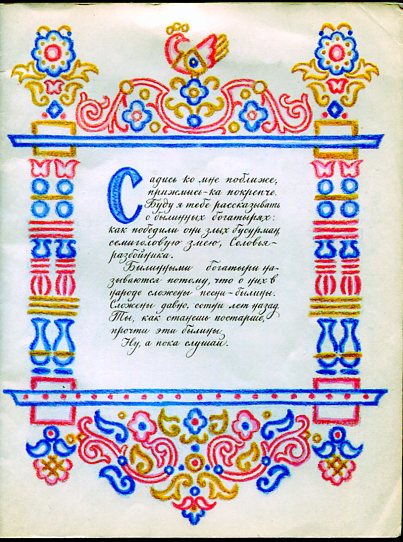 Садись ко мне поближе,
прижмись-ка покрепче.
Буду я тебе рассказывать
о былинных богатырях:
как победили они злых бусурман,
семиголовую змею, Соловья-
разбойника.
Былинными богатыри на-
зываются потому, что о них в
народе сложены песни-былины.
Сложены давно, сотни лет назад.
Ты, как станешь постарше,
прочти эти былины.
Ну, а пока слушай.